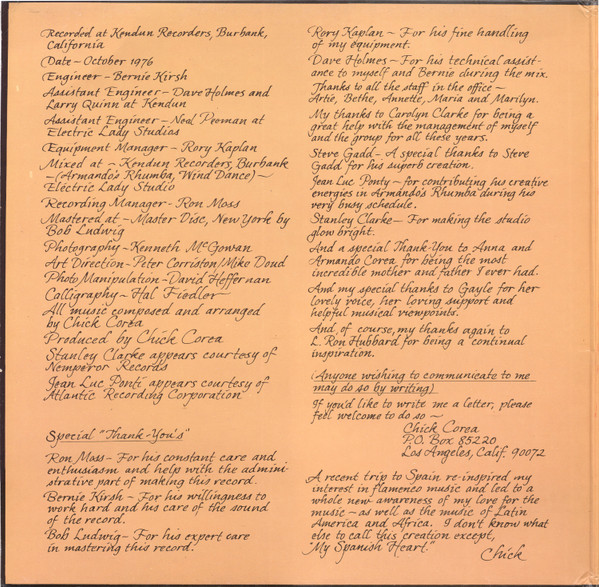 Recorded at Kendun Recorders, Burbank,
California
Date - October 1976
Engineer - Bernie Kirsh
Assistant Engineer - Dave Holmes and
Larry Quinn at Kendun
Assistant Engineer - Neal Preman at
Electric Lady Studios
Equipment Manager - Rory Kaplan
Mixed at - Kendun Recorders, Burbank
- (Armando's Rhumba, Wind Dance) -
Electric Lady Studio
Recording Manager - Ron Moss
Mastered at - Master Disc, New York by
Bob Ludwig
Photography - Kenneth McGowan
Art Direction - Peter Corriston/Mike Doud
Photo Manipulation - David Heffernan
Calligraphy - Hal Fiedler
All music composed and arranged
by Chick Corea
Produced by Chick Corea
Stanley Clarke appears courtesy of
Nemperor Records
Jean Luc Ponti appears courtesy of
Atlantic Recording Corporation
Special "Thank-You's"
Ron Moss - For his constant care and
enthusiasm and help with the admini-
strative part of making this record.
Bernie Kirsh - For his willingness to
work hard and his care of the sound
of the record.
Bob Ludwig - For his expert care
in mastering this record.
Rory Kaplan - For his fine handling
of my equipment.
Dave Holmes - For his technical assist-
ance to myself and Bernie during the mix.
Thanks to all the staff in the office -
Artie, Bethe, Annette, Maria and Marilyn.
My thanks to Carolyn Clarke for being a
great help with the management of myself
and the group for all these years.
Steve Gadd - A special thanks to Steve
Gadd for his superb creation.
Jean Luc Ponty - for contributing his creative
energies in Armando's Rhumba during his
very busy schedule.
Stanley Clarke - For making the studio
glow bright.
And a special Thank-You to Anna and
Armando Corea for being the most
incredible mother and father I ever had.
And my special thanks to Gayle for her
lovely voice, her loving support and
helpful musical viewpoints.
And, of course, my thanks again to
L. Ron Hubbard for being a continual
inspiration.
(Anyone wishing to communicate to me
may do so by writing)
If you'd like to write me a letter, please
feel welcome to do so -
Chick Corea
P.O. Box 85220
Los Angeles, Calif. 90072
A recent trip to Spain re-inspired my
interest in flamenco music and led to a
whole new awareness of my love for the
music - as well as the music of Latin
America and Africa. I don't know what
else to call this creation except,
"My Spanish Heart"
Chick